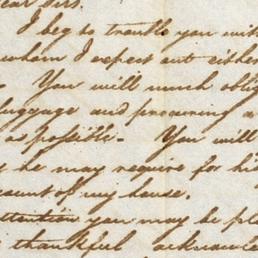 ear Sirs.
I beg to trouble you wit
whom I expect out either
. You will much oblig
luggage and procuring a
as possible. You will
he may require for hi
count of my house.
attention you may be ple
thankful acknowle